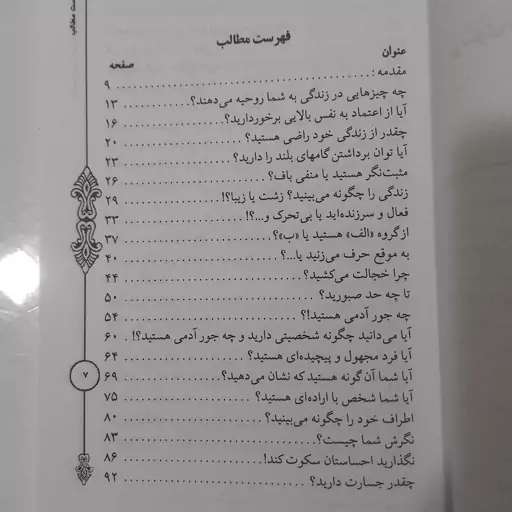 فهرست مطالب
عنوان
صفحه
مقدمه: ۹
چه چیزهایی در زندگی به شما روحیه می‌دهند؟ ۱۳
آیا از اعتماد به نفس بالایی برخوردارید؟ ۱۶
چقدر از زندگی خود راضی هستید؟ ۲۰
آیا توان برداشتن گامهای بلند را دارید؟ ۲۳
مثبت‌نگر هستید یا منفی باف؟ ۲۶
زندگی را چگونه می‌بینید؟ زشت یا زیبا؟! ۲۹
فعال و سرزنده‌اید یا بی‌تحرک و...؟! ۳۳
از گروه «الف» هستید یا «ب»؟ ۳۷
به موقع حرف می‌زنید یا...؟ ۴۰
چرا خجالت می‌کشید؟ ۴۴
تا چه حد صبورید؟ ۵۰
چه جور آدمی هستید!؟ ۵۴
آیا می‌دانید چگونه شخصیتی دارید و چه جور آدمی هستید؟! ۶۰
آیا فرد مجهول و پیچیده‌ای هستید؟ ۶۴
آیا شما آن گونه هستید که نشان می‌دهید؟ ۶۹
آیا شما شخص با اراده‌ای هستید؟ ۷۵
اطراف خود را چگونه می‌بینید؟ ۸۰
نگرش شما چیست؟ ۸۳
نگذارید احساستان سکوت کند! ۸۶
چقدر جسارت دارید؟ ۹۲
۷